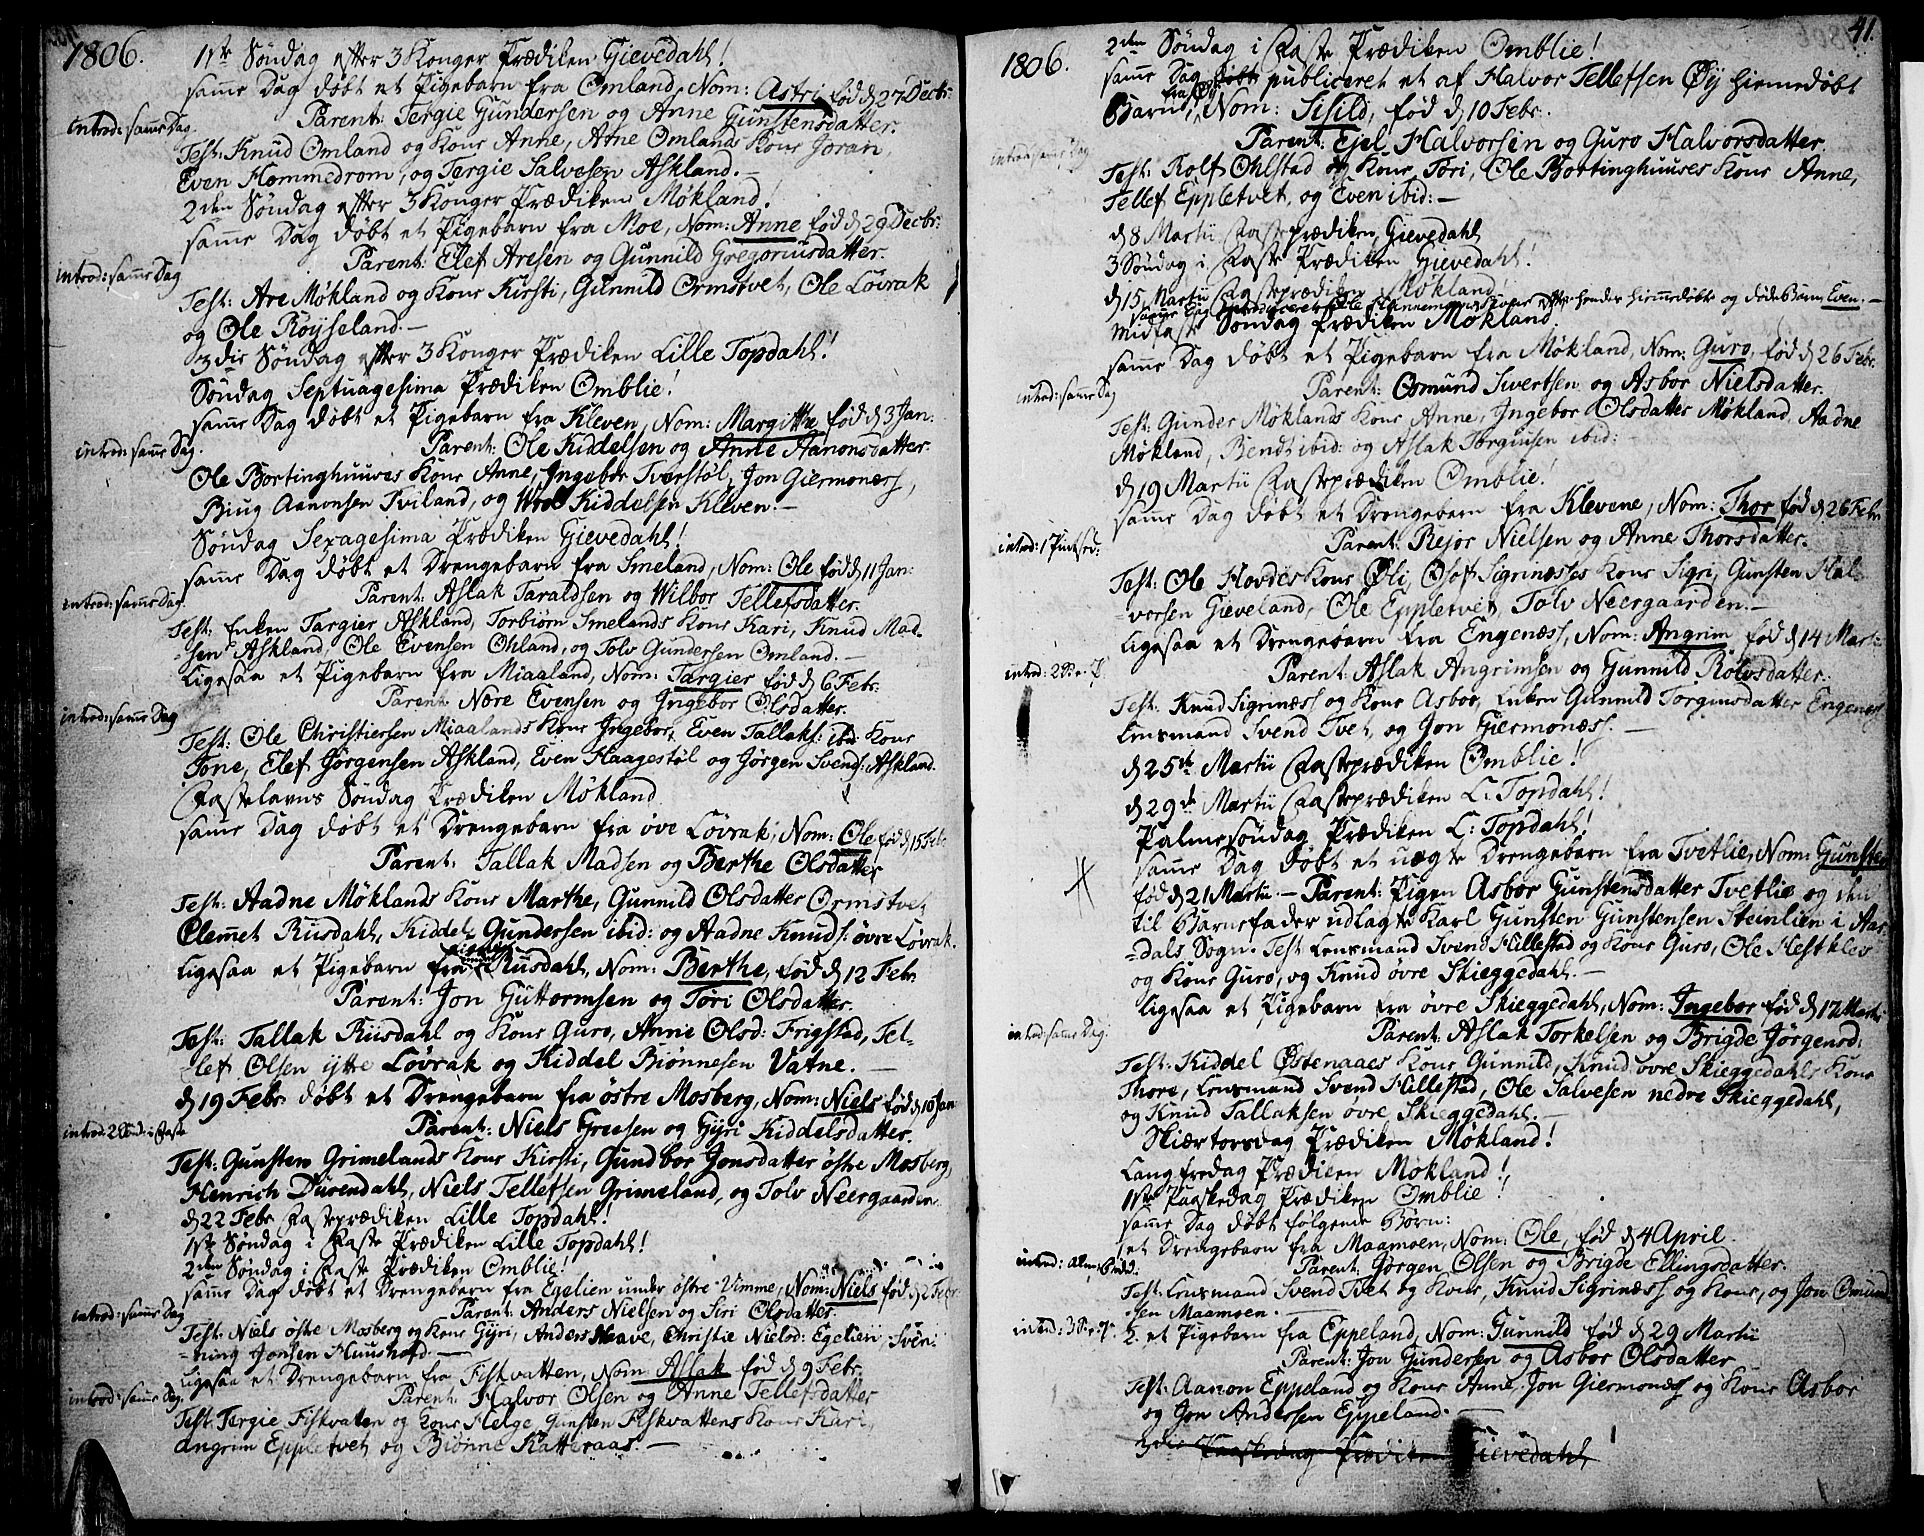 1806.
1ste Søndag efter 3 Konger Prædiken Gievedahl!
samme Dag døbt et Pigebarn fra Omland, Nom: Astri fød d 27 Decbr:
introd: samme Dag.
Parent: Tergie Gundersen og Anne Gunstensdatter.
Test: Knud Omland og Kone Anne, Aane Omlands Kone Joran,
Even Hommedrom, og Tergie Salvesen Askland.—
2den Søndag efter 3 Konger Prædiken Møkland!
samme Dag døbt et Pigebarn fra Moe, Nom: Anne fød d 29 Decbr:
introd: samme Dag
Parent: Elef Aresen og Gunnild Gregoriusdatter.
Test: Are Møkland og Kone Kirsti, Gunnild Ormstvet, Ole Lovrak
og Ole Røyseland.—
3die Søndag efter 3 Konger Prædiken Lille Topdahl!
Søndag Septuagesima Prædiken Omblie!
samme Dag døbt et Pigebarn fra Kleven, Nom: Margitte fød d 3 Jan:
introd: samme Dag.
Parent: Ole Kiddelsen og Anne Aanonsdatter.
Ole Bortinghuuses Kone Anne, Ingebor Tverstøl, Jon Giermonæss,
Biug Aanonsen Tviland, og Kiddelsen Kleven.—
Søndag Sexagesima Prædiken Gievedahl!
samme Dag døbt et Drengebarn fra Smeland, Nom: Ole fød d 11 Jan:
introd: samme Dag.
Parent: Aslak Taraldsen og Wilbor Tellefsdatter.
Test: Enken Targier Askland, Torbiørn Smelands Kone Kari, Knud Mad-
-sen Askland, Ole Evensen Ohland, og Tolv Gundersen Omland.—
Ligesaa et Pigebarn fra Miaaland, Nom: Targier fød d 6 Febr:
introd: samme Dag
Parent: Nore Evensen og Ingebor Olsdatter.
Test: Ole Christiersen Miaalands Kone Ingebor, Even Tallaks: ibd: Kone
Tone, Elef Jørgensen Askland, Even Haagestøl og Jørgen Svends: Askland.
Fastelavns Søndag Prædiken Møkland
samme Dag døbt et Drengebarn fra øve Lovrak, Nom: Ole fød d 15 Febr
Parent: Tallak Madsen og Berthe Olsdatter
Test: Aadne Møklands Kone Marthe, Gunnild Olsdatter Ormstvet
Clemmet Rusdahl, Kiddel Gundersen ibid: og Aadne Knuds: øvre Lovrak.
Ligesaa et Pigebarn fra Rusdahl, Nom: Berthe, fød d 12 Febr:
Parent: Jon Guttormsen og Tøri Olsdatter.
Test: Tallak Rusdahl og Kone Guro, Anne Olsd: Frigstad, Tel-
-lef Olsen ytre Lovrak og Kiddel Biønnesen Vatne.—
d 19 Febr: døbt et Drengebarn fra østre Mosberg, Nom: Niels fød d 10 Jan
introd: 2 Sønd: i Faste
Parent: Niels Greesen og Gyri Kiddelsdatter.
Test: Gunsten Grimelands Kone Kirsti, Gundbor Jonsdatter østre Mosberg,
Henrich Durendahl, Niels Tellefsen Grimeland, og Tolv Neergaarden.
d 22 Febr: Fasteprædiken Lille Topdahl!
1ste Søndag i Faste Prædiken Lille Topdahl!
2den Søndag i Faste Prædiken Omblie!
samme Dag døbt et Drengebarn fra Egelien under østre Vimme, Nom: Niels fød d 2 Febr:
introd: samme Dag
Parent: Anders Nielsen og Siri Olsdatter.
Test: Niels østre Mosberg og Kone Gyri, Anders Heave, Christie Nielsd: Egelien Sven-
-ning Jonsen Huusfofd.—
Ligesaa et Drengebarn fra Fiskvatten, Nom: Aslak fød d 9 Febr:
introd: samme Dag
Parent: Halvor Olsen og Anne Tellefsdatter
Test: Tergie Fiskvatten og Kone Helge, Gunsten Fiskvattens Kone Kari,
Angrim Eppletvet og Biønne Katteraas.—
41.
1806.
2den Søndag i Faste Prædiken Omblie!
samme Dag publiceret et af Halvor Tellefsen Øy hiemmedøbt
Barn, Nom: Sisild, fød d 10 Febr:
introd: samme Dag
Parent: Ejel Halvorsen og Guro Halvorsdatter.
Test: Rolf Ohlstad og Kone Tøri, Ole Bortinghuuses Kone Anne,
Tellef Eppletvet, og Even ibid:—
d 8 Martii Fasteprædiken, Gievedahl
3 Søndag i Faste Prædiken Gievedahl!
d 15 Martii Fasteprædiken Møkland!
samme Dag introduceret Kone efter hendes hiemmedøbte og døde Barn Even.—
Midfaste Søndag Prædiken Møkland
samme Dag døbt et Pigebarn fra Møkland, Nom: Guro, fød d 26 Febr.
introd: samme Dag
Parent: Osmund Sivertsen og Asbor Nielsdatter.
Test: Gunder Møklands Kone Anne, Ingebor Olsdatter Møkland, Aadne
Møkland, Bendt ibid: og Aslak Torgiusen ibid:
d 19 Martii Fasteprædiken Omblie!
samme Dag døbt et Drengebarn fra Klevene, Nom: Thor fød d 26 Febr
introd: 1 Pintsed:
Parent: Rejor Nielsen og Anne Thorsdatter.
Test: Ole Hovdes Kone Øli, Olof Sigrinæsses Kone Sigri, Gunsten Hal-
-vorsen Gieveland, Ole Eppletvet, Tolv Neergaarden.—
Ligesaa et Drengebarn fra Engenæss, Nom: Angrim fød d 14 Marti
introd: 2 S: e: P.
Parent: Aslak Angrimsen og Gunnild Rolvsdatter.
Test: Knud Sigrinæss og Kone Asbor, Enken Gunnild Torgiusdatter Engenæs
Lensmand Svend Tvet, og Jon Giermonæss.—
d 25de Martii Fasteprædiken Omblie!
d 29de Martii Fasteprædiken L: Topdahl!
Palmesøndag Prædiken L: Topdahl!
samme Dag døbt et uægte Drengebarn fra Tvetlie, Nom: Gunsten
fød d 21 Martii.— Parent: Pigen Asbor Gunstensdatter Tvetlie og den
til Barnefader udlagte Karl Gunsten Gunstensen Steinlien i Aar-
-dals Sogn. Test: Lensmand Svend Hillestad og Kone Guro, Ole Hestklev
og Kone Guro, og Knud øvre Skieggedahl.—
Ligesaa et Pigebarn fra øvre Skieggedahl, Nom: Ingebor fød d 12 Marti
introd: samme Dag
Parent: Aslak Torkelsen og Brigde Jørgensd:
Test: Kiddel Østenaaes Kone Gunnild, Knud øvre Skieggedahls Kone
Thore, Lensmand Svend Hillestad, Ole Salvesen nedre Skieggedahl,
og Knud Tallaksen øvre Skieggedahl.—
Skiærtorsdag Prædiken Møkland!
Langfredag Prædiken Møkland!
1ste Paaskedag Prædiken Omblie!
samme Dag døbt følgende Børn:
1, et Drengebarn fra Maamoen, Nom: Ole, fød d 4 April.
Parent: Jørgen Olsen og Brigde Ellingsdatter.
Test: Lensmand Svend Tvet og Kone, Knud Sigrinæss og Kone, og Jon Omund-
-sen Maamoen.—
2. et Pigebarn fra Eppeland, Nom: Gunnild fød d 29 Martii
Parent: Jon Gundersen og Asbor Olsdatter
Test: Aanon Eppeland og Kone Anne, Jon Giermonæss og Kone Asbor
og Jon Andersen Eppeland.
3die Paaskedag Prædiken Gievedahl,